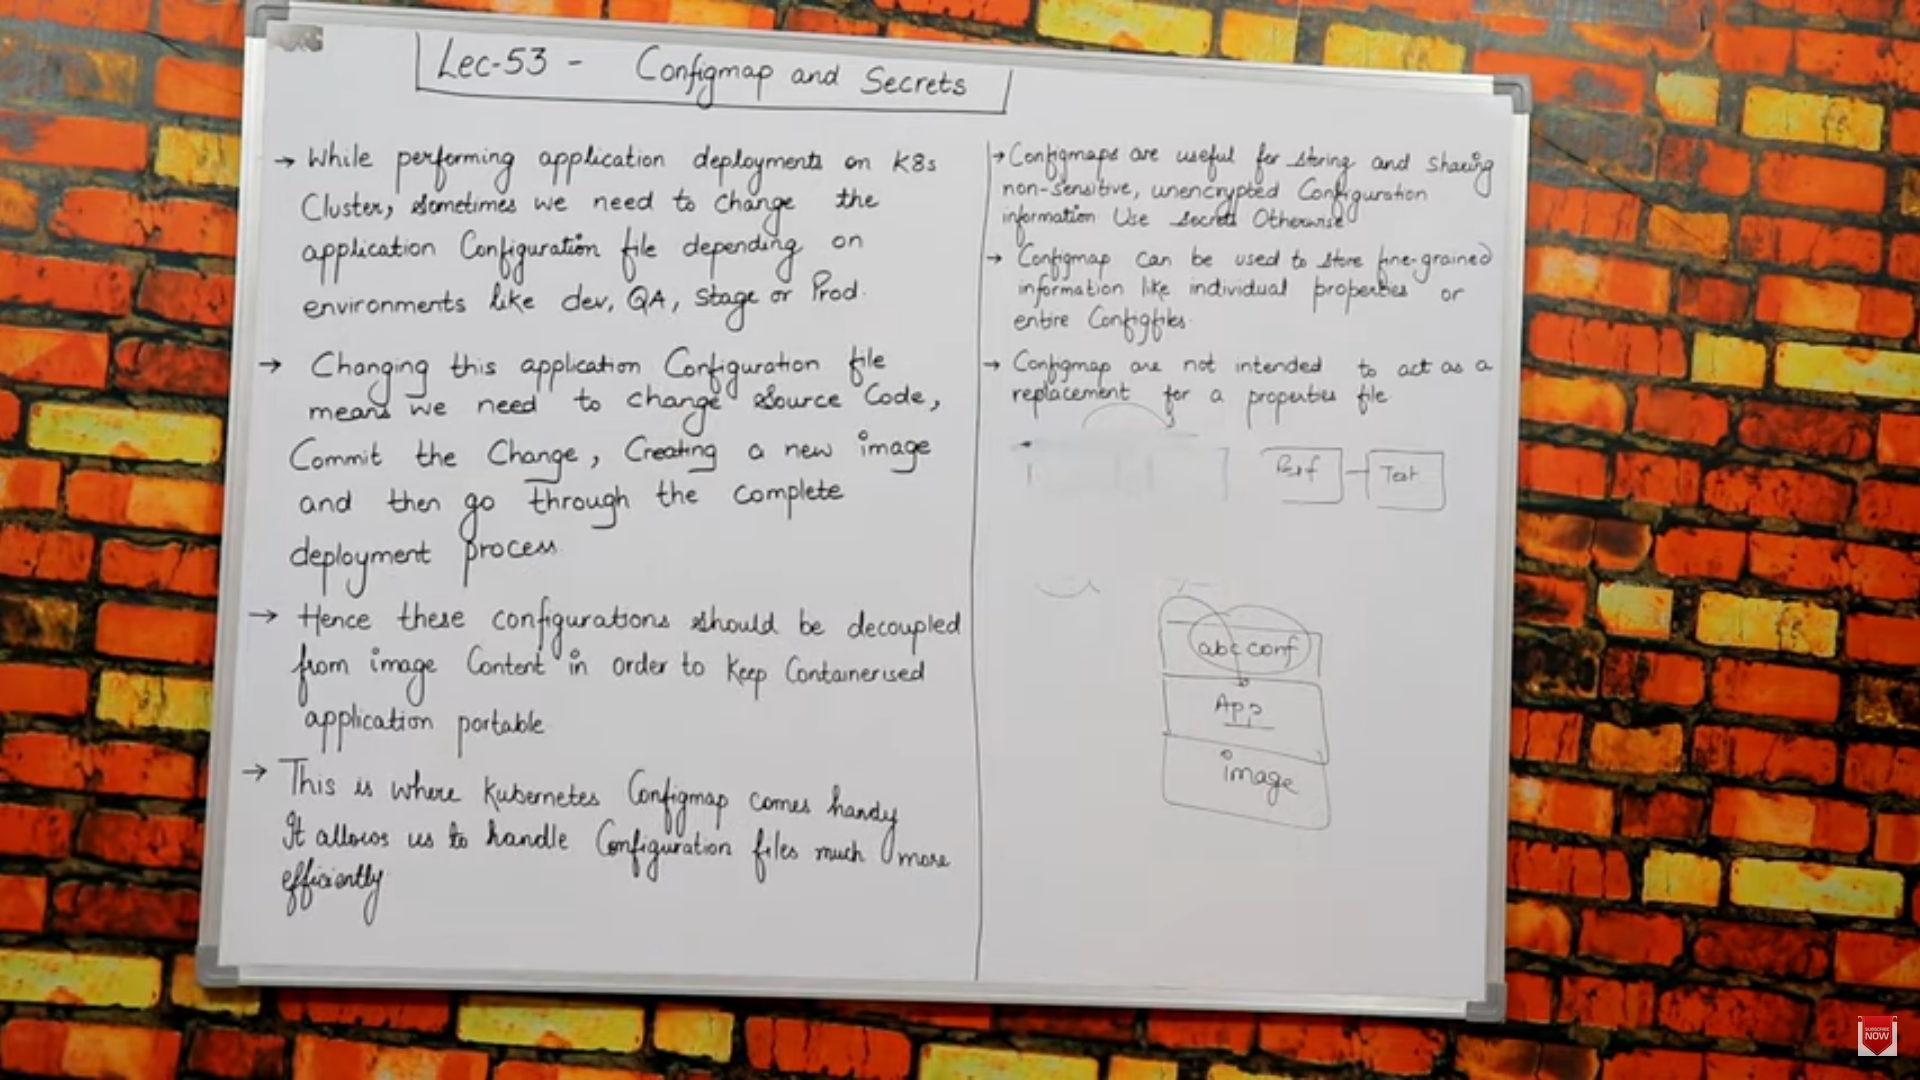 Lec-53 - Configmap and Secrets
→ While performing application deployments on K8s
Cluster, sometimes we need to change the
application Configuration file depending on
environments like dev, QA, Stage or Prod.
→ Changing this application Configuration file
means we need to change source Code,
Commit the Change, Creating a new image
and then go through the complete
deployment process.
→ Hence these configurations should be decoupled
from image Content in order to Keep Containerised
application portable
→ This is where Kubernetes Configmap comes handy
It allows us to handle Configuration files much more
efficiently
→ Configmaps are useful for storing and sharing
non-sensitive, unencrypted Configuration
information Use secrets Otherwise
→ Configmap can be used to store fine-grained
information like individual properties or
entire Configfiles.
→ Configmap are not intended to act as a
replacement for a properties file
Test
abc conf
App
image
SUBSCRIBE
NOW